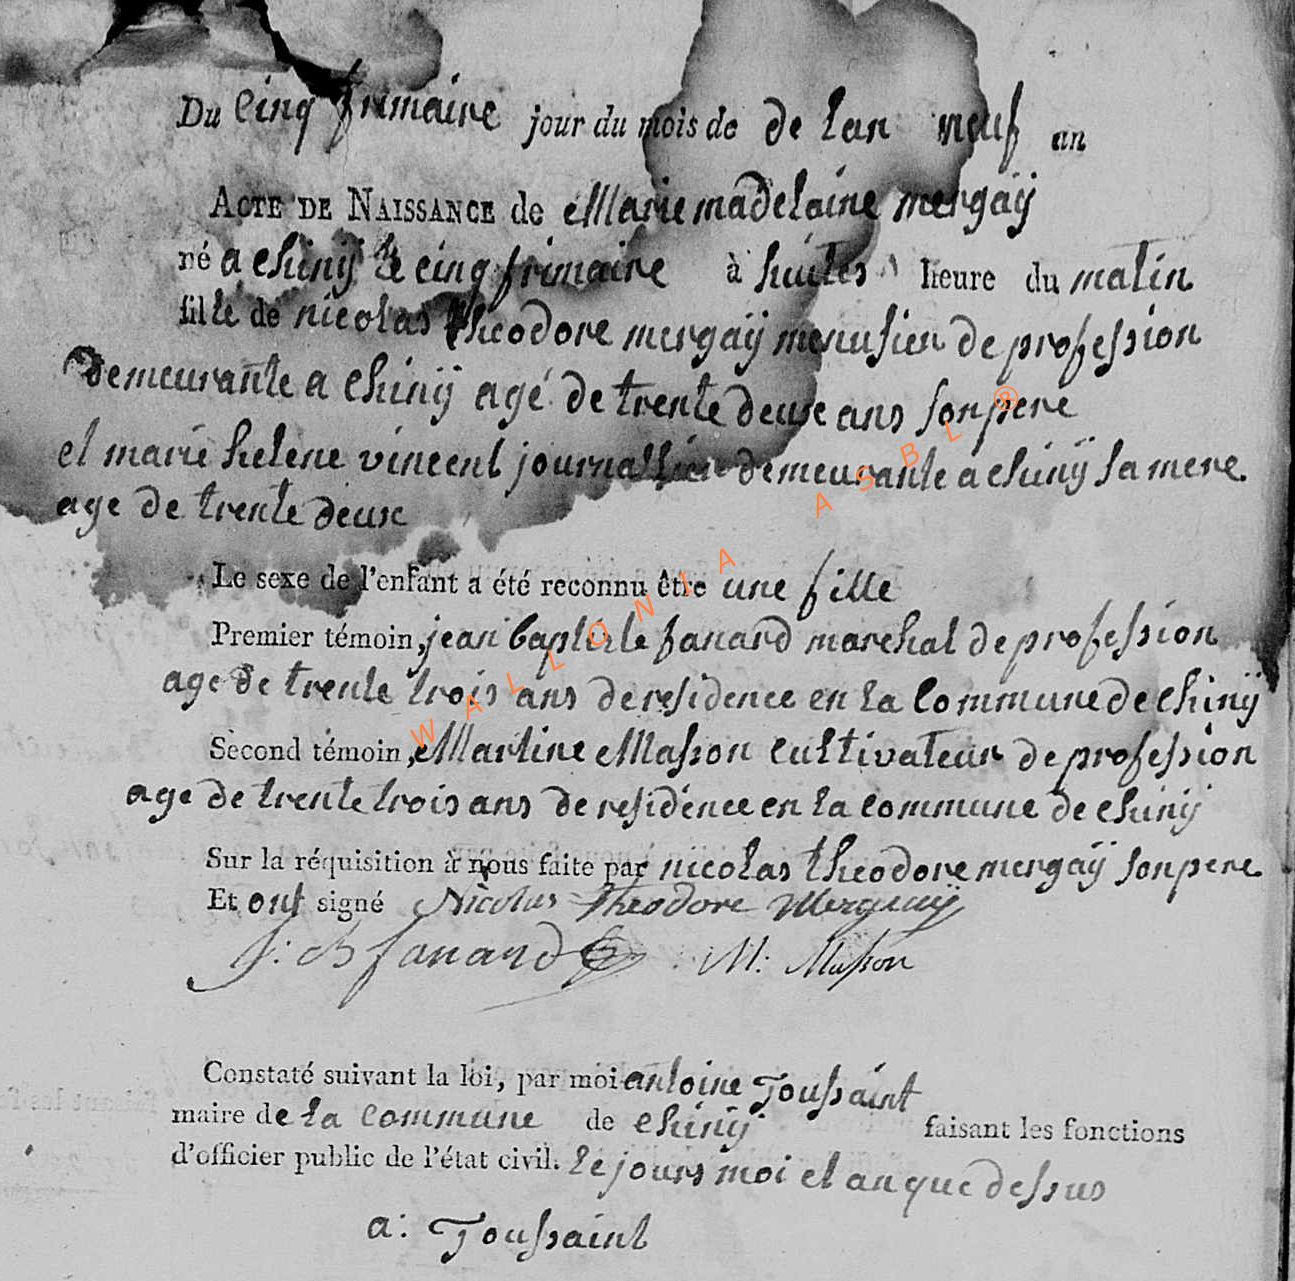 Du cinq frimaire jour du mois de de lan neuf an
ACTE DE NAISSANCE de Marie madelaine mergaÿ
né a chinÿ le cinq frimaire à huites heure du matin
fille de nicolas theodore mergaÿ menusier de profession
demeurante a chinÿ agé de trente deux ans son pere
et marie helene vincent journallier demeurante a chinÿ sa mere
age de trente deux
Le sexe de l'enfant a été reconnu être une fille
Premier témoin, jean baptiste fanard marchal de profession
age de trente trois ans de residence en la commune de chinÿ
Second témoin, Martine Masson cultivateur de profession
age de trente trois ans de residence en la commune de chinÿ
Sur la réquisition à nous faite par nicolas theodore mergaÿ son pere
Et ont signé Nicolas Theodore Mergaÿ
J: B fanard M: Masson
Constaté suivant la loi, par moi antoine Toussaint
maire de la commune de chinÿ faisant les fonctions
d'officier public de l'état civil. le jours moi et an que dessus
a: Toussaint
WALLONIA ASBL ®